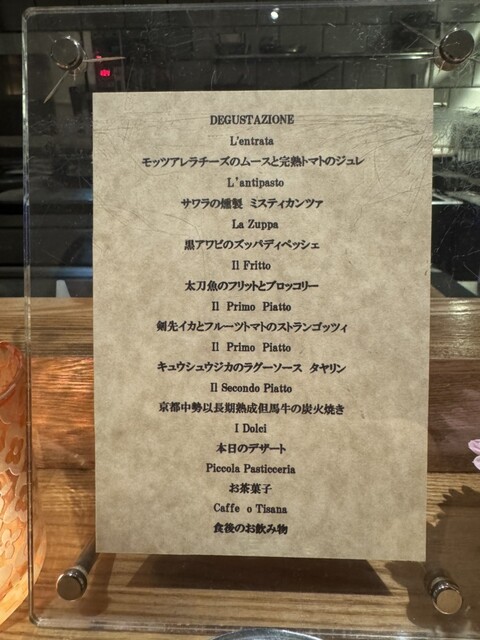 DEGUSTAZIONE
L'entrata
モッツアレラチーズのムースと完熟トマトのジュレ
L'antipasto
サワラの燻製 ミスティカンツァ
La Zuppa
黒アワビのズッパディペッシェ
Il Fritto
太刀魚のフリットとブロッコリー
Il Primo Piatto
剣先イカとフルーツトマトのストランゴッツィ
Il Primo Piatto
キュウシュウジカのラグーソース タヤリン
Il Secondo Piatto
京都中勢以長期熟成但馬牛の炭火焼き
I Dolci
本日のデザート
Piccola Pasticceria
お茶菓子
Caffe o Tisana
食後のお飲み物